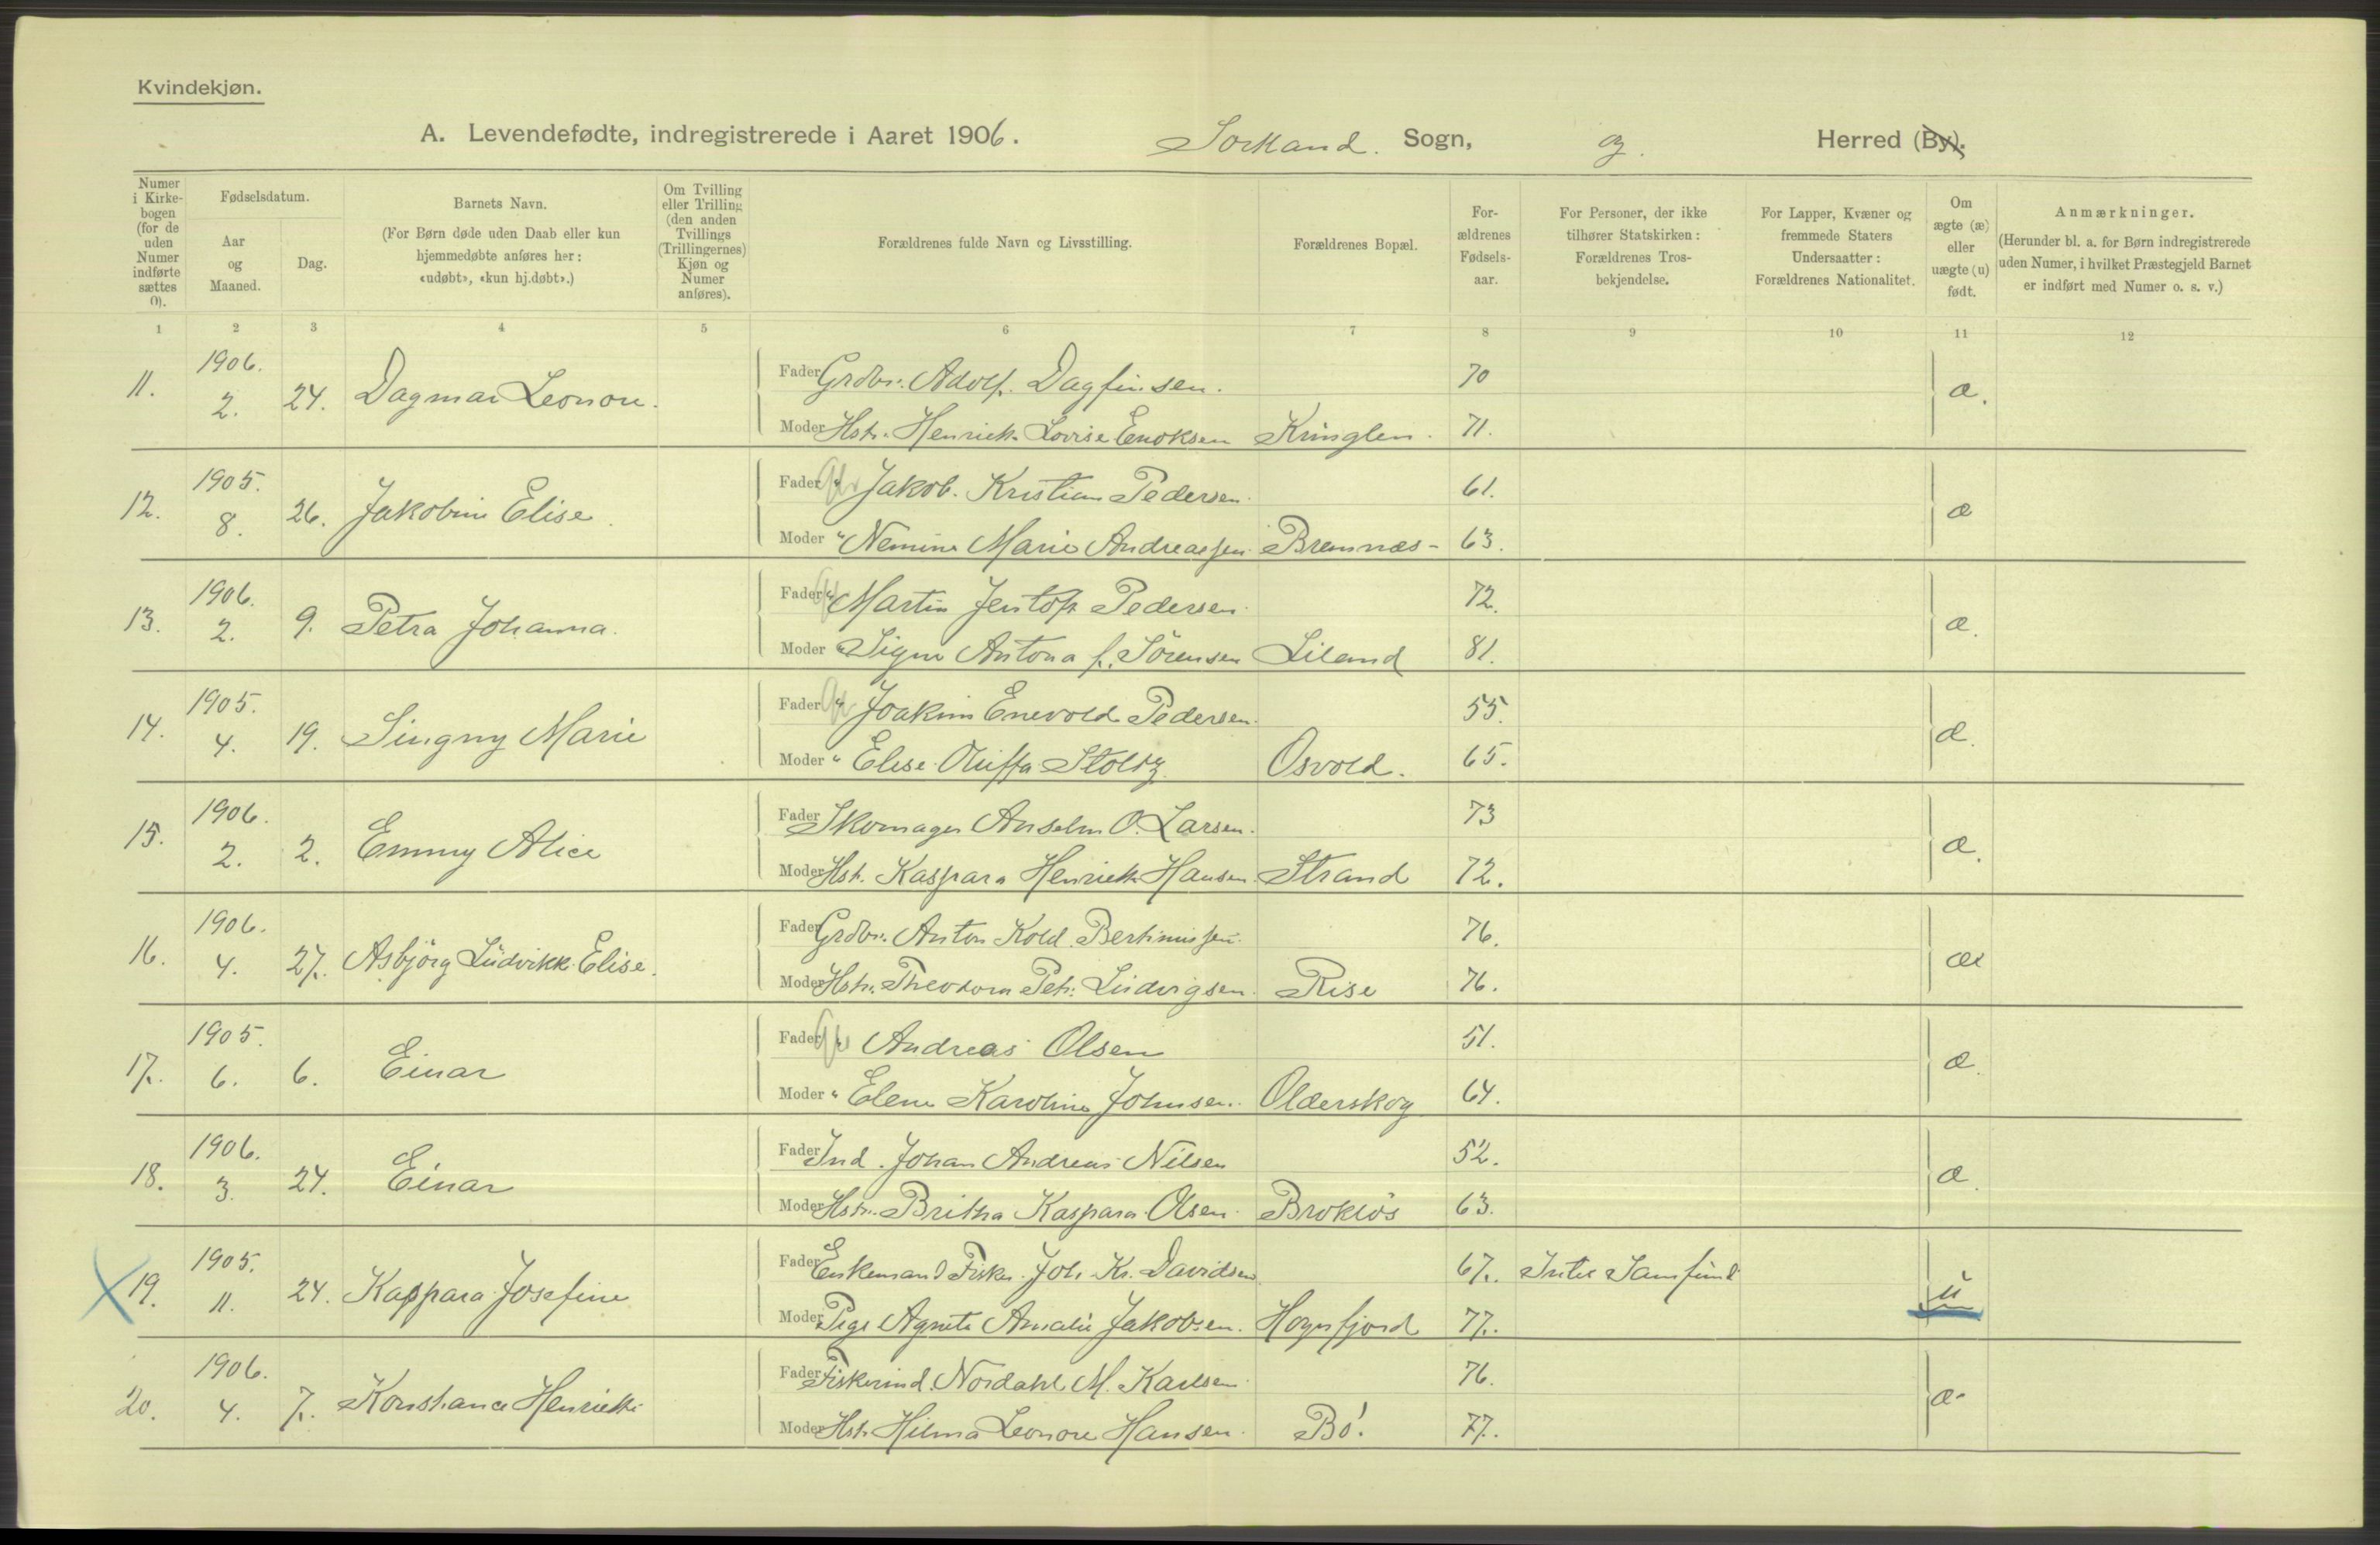 Kvindekjøn.
A. Levendefødte, indregistrerede i Aaret 1906. Sortland. Sogn, og. Herred (By).
Numer i Kirkebogen (for de uden Numer indførte sættes 0).
Fødselsdatum.
Aar og Maaned.
Dag.
Barnets Navn.
(For Børn døde uden Daab eller kun hjemmedøbte anføres her: «udøbt», «kun hj.døbt».)
Om Tvilling eller Trilling (den anden Tvillings (Trillingernes) Kjøn og Numer anføres).
Forældrenes fulde Navn og Livsstilling.
Forældrenes Bopæl.
Forældrenes Fødselsaar.
For Personer, der ikke tilhører Statskirken: Forældrenes Trosbekjendelse.
For Lapper, Kvæner og fremmede Staters Undersaatter: Forældrenes Nationalitet.
Om ægte (æ) eller uægte (u) født.
Anmærkninger.
(Herunder bl. a. for Børn indregistrerede uden Numer, i hvilket Præstegjeld Barnet er indført med Numer o. s. v.)
1 2 3 4 5 6 7 8 9 10 11 12
11. 1906. 2. 24. Dagmar Leonore. Fader Grdbr. Adolf Dagfinsen. 70 æ.
Moder Hstr. Henriette Lovise Enoksen Kringlen. 71.
12. 1905. 8. 26. Jakobine Elise. Fader " Jakob Kristian Pedersen. 61. æ
Moder " Nemine Marie Andreassen Bremnæs- 63.
13. 1906. 2. 9. Petra Johanna. Fader " Martin Jentoft Pedersen. 72. æ.
Moder " Signe Antona f. Sörensen Liland 81.
14. 1905. 4. 19. Singny Marie Fader " Joakim Enevold Pedersen. 55. æ.
Moder " Elise Oluffa Stoltz Osvold. 65.
15. 1906. 2. 2. Emmy Alice Fader Skomager Anselm O. Larsen. 73 æ.
Moder Hst. Kaspara Henriette Hansen. Strand 72.
16. 1906. 4. 27. Asbjörg Ludvikke Elise. Fader Grdbr. Anton Kold Bertinussen. 76. æ
Moder Hstr. Theodora Petr. Ludvigsen. Rise 76.
17. 1905. 6. 6. Einar Fader " Andreas Olsen 51. æ.
Moder " Elene Karoline Johnsen. Olderskog 64.
18. 1906. 3. 24. Einar Fader Ind. Johan Andreas Nilsen 52. æ.
Moder Hstr. Britha Kaspara Olsen. Broklös 63.
19. 1905. 11. 24. Kaspara Josefine Fader Enkemand Fisker Joh. Kr. Davidsen 67. Intet Samfund u
Moder Pige Agnete Amalie Jakobsen. Hognfjord 77.
20. 1906. 4. 7. Konstance Henriette Fader Fiskerind. Nordahl M. Karlsen. 76. æ-
Moder Hst. Hilma Leonore Hansen. Bö. 77.